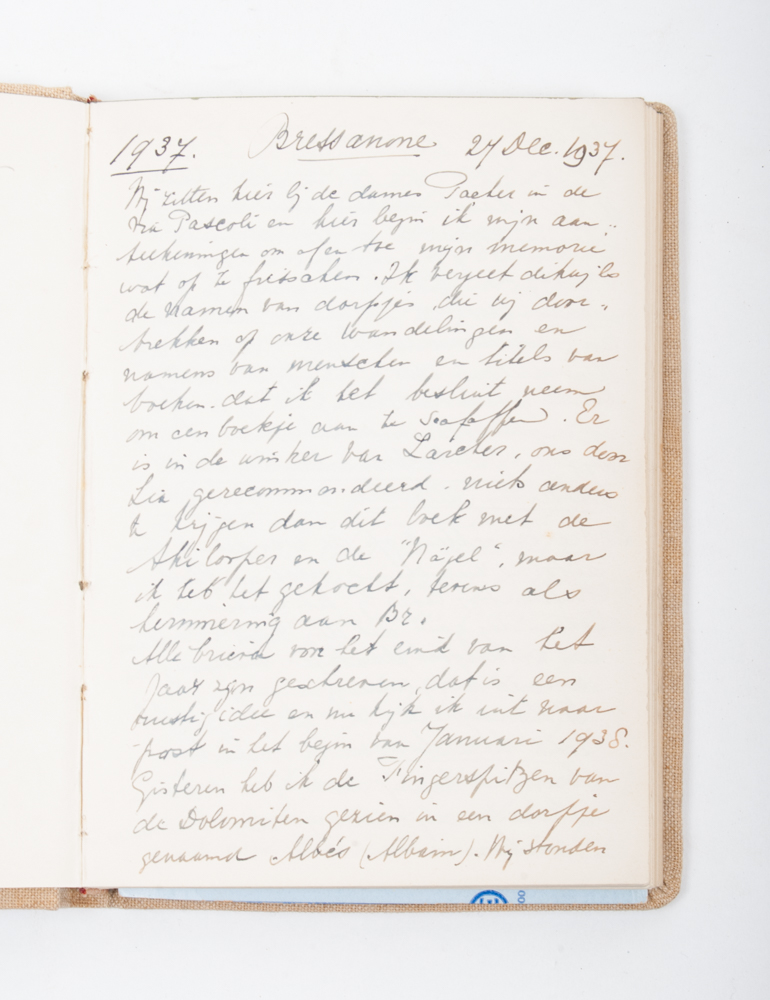 1937. Bressanone 27 Dec. 1937.
Wij zitten hier bij de dames Pacher in de
Via Pascoli en hier begin ik mijn aan-
teekeningen om af en toe mijn memorie
wat op te frisschen. Ik vergeet dikwijls
de namen van dorpjes, die wij door-
trekken op onze wandelingen en
namens van menschen en titels van
boeken. dat ik het besluit neem
om een boekje aan te schaffen. Er
is in de winkel van Larcher, ons door
Lia gerecommandeerd. niets anders
te krijgen dan dit boek met de
skilooper en de "Nägel", maar
ik heb het gekocht, tevens als
herinnering aan Br.
Alle brieven voor het eind van het
Jaar zijn geschreven, dat is een
rustig idee en nu kijk ik uit naar
post in het begin van Januari 1938.
Gisteren heb ik de Fingerspitzen van
de Dolomiten gezien in een dorpje
genaamd Albés (Albeins). Wij stonden